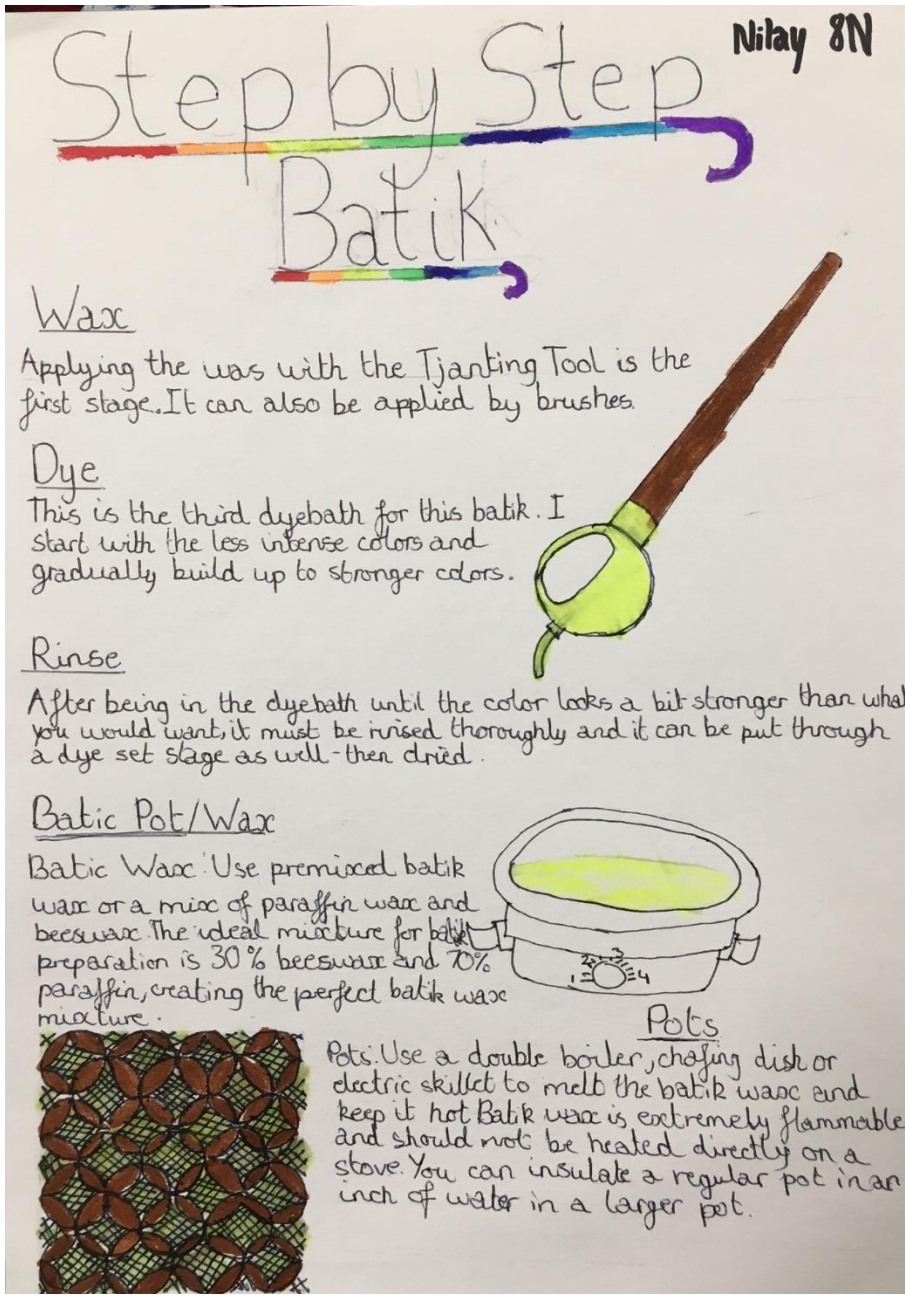 Nilay 8N
Step by Step
Batik
Wax
Applying the was with the Tjanting Tool is the
first stage. It can also be applied by brushes.
Dye
This is the third dyebath for this batik. I
start with the less intense colors and
gradually build up to stronger colors.
Rinse
After being in the dyebath until the color looks a bit stronger than what
you would want, it must be rinsed thoroughly and it can be put through
a dye set stage as well - then dried.
Batic Pot/Wax
Batic Wax: Use premixed batik
wax or a mix of paraffin wax and
beeswax. The ideal mixture for batik
preparation is 30% beeswax and 70%
paraffin, creating the perfect batik wax
mixture.
1 2 3 4
Pots
Pots: Use a double boiler, chafing dish or
electric skillet to melt the batik wax and
keep it hot Batik wax is extremely flammable
and should not be heated directly on a
stove. You can insulate a regular pot in an
inch of water in a larger pot.